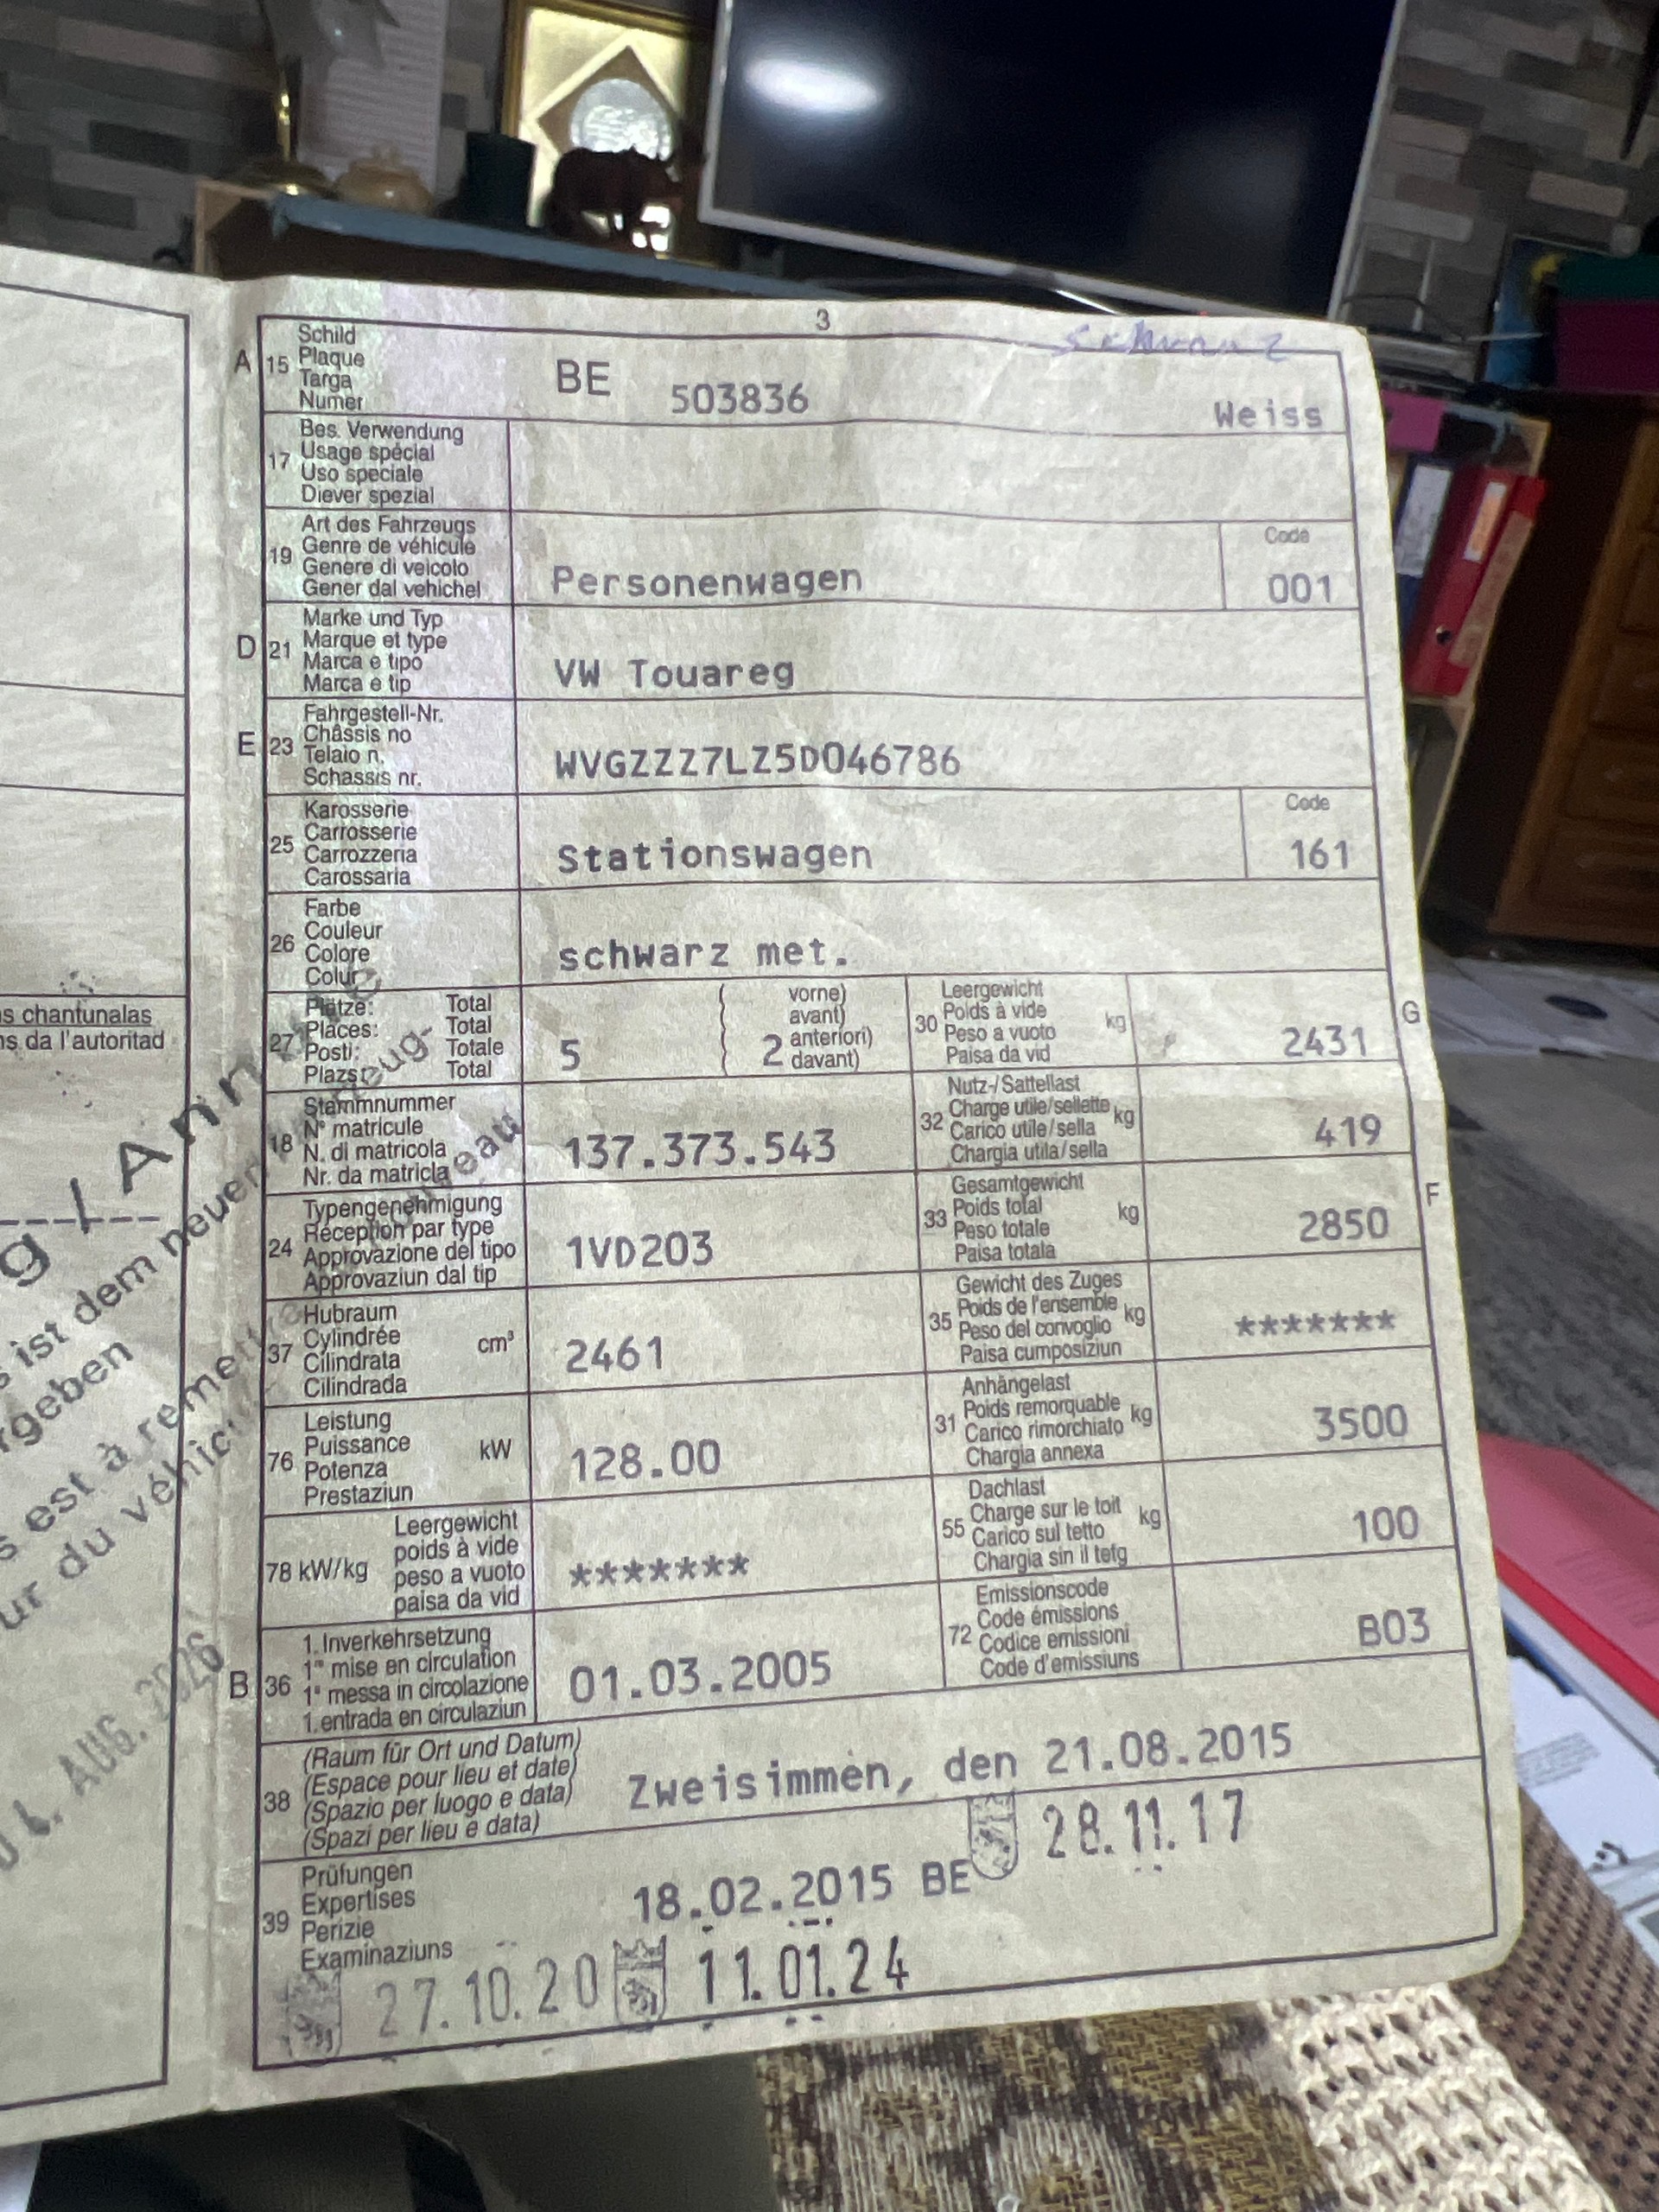 3
schwarz
A 15 Schild
Plaque
Targa
Numer
BE 503836 Weiss
17 Bes. Verwendung
Usage spécial
Uso speciale
Diever spezial
19 Art des Fahrzeugs
Genre de véhicule
Genere di veicolo
Gener dal vehichel
Personenwagen
Code
001
D 21 Marke und Typ
Marque et type
Marca e tipo
Marca e tip
VW Touareg
E 23 Fahrgestell-Nr.
Châssis no
Telaio n.
Schassis nr.
WVGZZZ7LZ5D046786
25 Karosserie
Carrosserie
Carrozzeria
Carossaria
Stationswagen
Code
161
26 Farbe
Couleur
Colore
Colur
schwarz met.
27 Plätze: Total
Places: Total
Posti: Totale
Plazs: Total
5 ( 2 vorne)
avant)
anteriori)
davant)
30 Leergewicht
Poids à vide
Peso a vuoto
Paisa da vid
kg
2431
G
18 Stammnummer
N° matricule
N. di matricola
Nr. da matricla
137.373.543
32 Nutz-/Sattellast
Charge utile/sellette
Carico utile/sella
Chargia utila/sella
kg
419
24 Typengenehmigung
Réception par type
Approvazione del tipo
Approvaziun dal tip
1VD203
33 Gesamtgewicht
Poids total
Peso totale
Paisa totala
kg
2850
F
37 Hubraum
Cylindrée
Cilindrata
Cilindrada
cm³
2461
35 Gewicht des Zuges
Poids de l'ensemble
Peso del convoglio
Paisa cumposiziun
kg
*******
76 Leistung
Puissance
Potenza
Prestaziun
kW
128.00
31 Anhängelast
Poids remorquable
Carico rimorchiato
Chargia annexa
kg
3500
78 kW/kg Leergewicht
poids à vide
peso a vuoto
paisa da vid
*******
55 Dachlast
Charge sur le toit
Carico sul tetto
Chargia sin il tetg
kg
100
B 36 1. Inverkehrsetzung
1re mise en circulation
1a messa in circolazione
1. entrada en circulaziun
01.03.2005
72 Emissionscode
Code émissions
Codice emissioni
Code d'emissiuns
B03
38 (Raum für Ort und Datum)
(Espace pour lieu et date)
(Spazio per luogo e data)
(Spazi per lieu e data)
Zweisimmen, den 21.08.2015
39 Prüfungen
Expertises
Perizie
Examinaziuns
18.02.2015 BE 28.11.17
27.10.20 11.01.24
s chantunalas
ns da l'autoritad
g / Ann
s ist dem neuen
rgeben
s est à remettre
ur du véhic
AUG. 2026